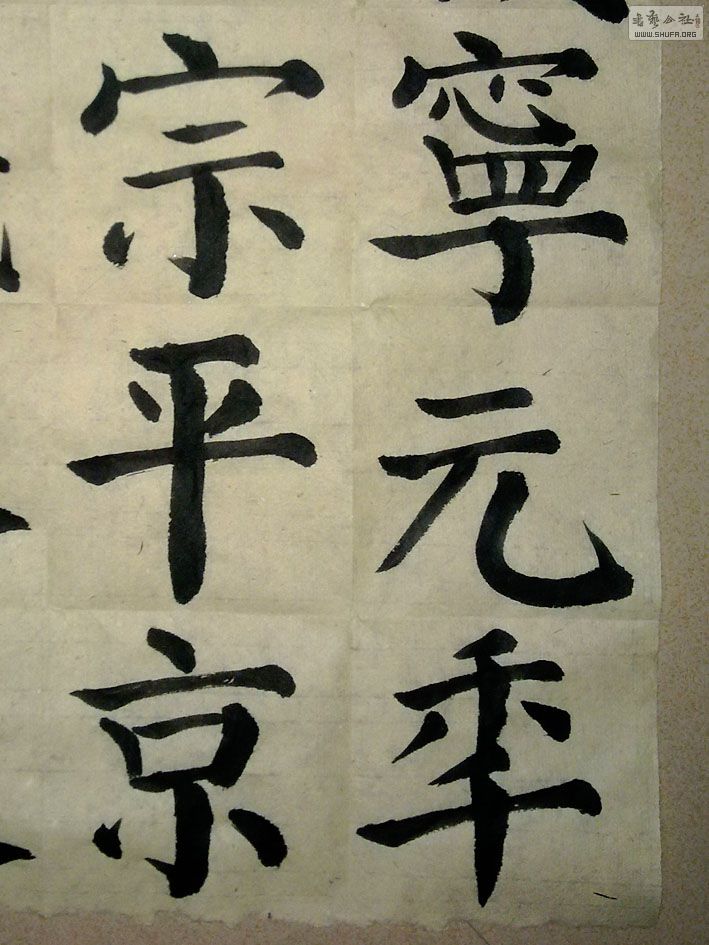 寧元年
宗平京
書藝公社
WWW.SHUFA.ORG